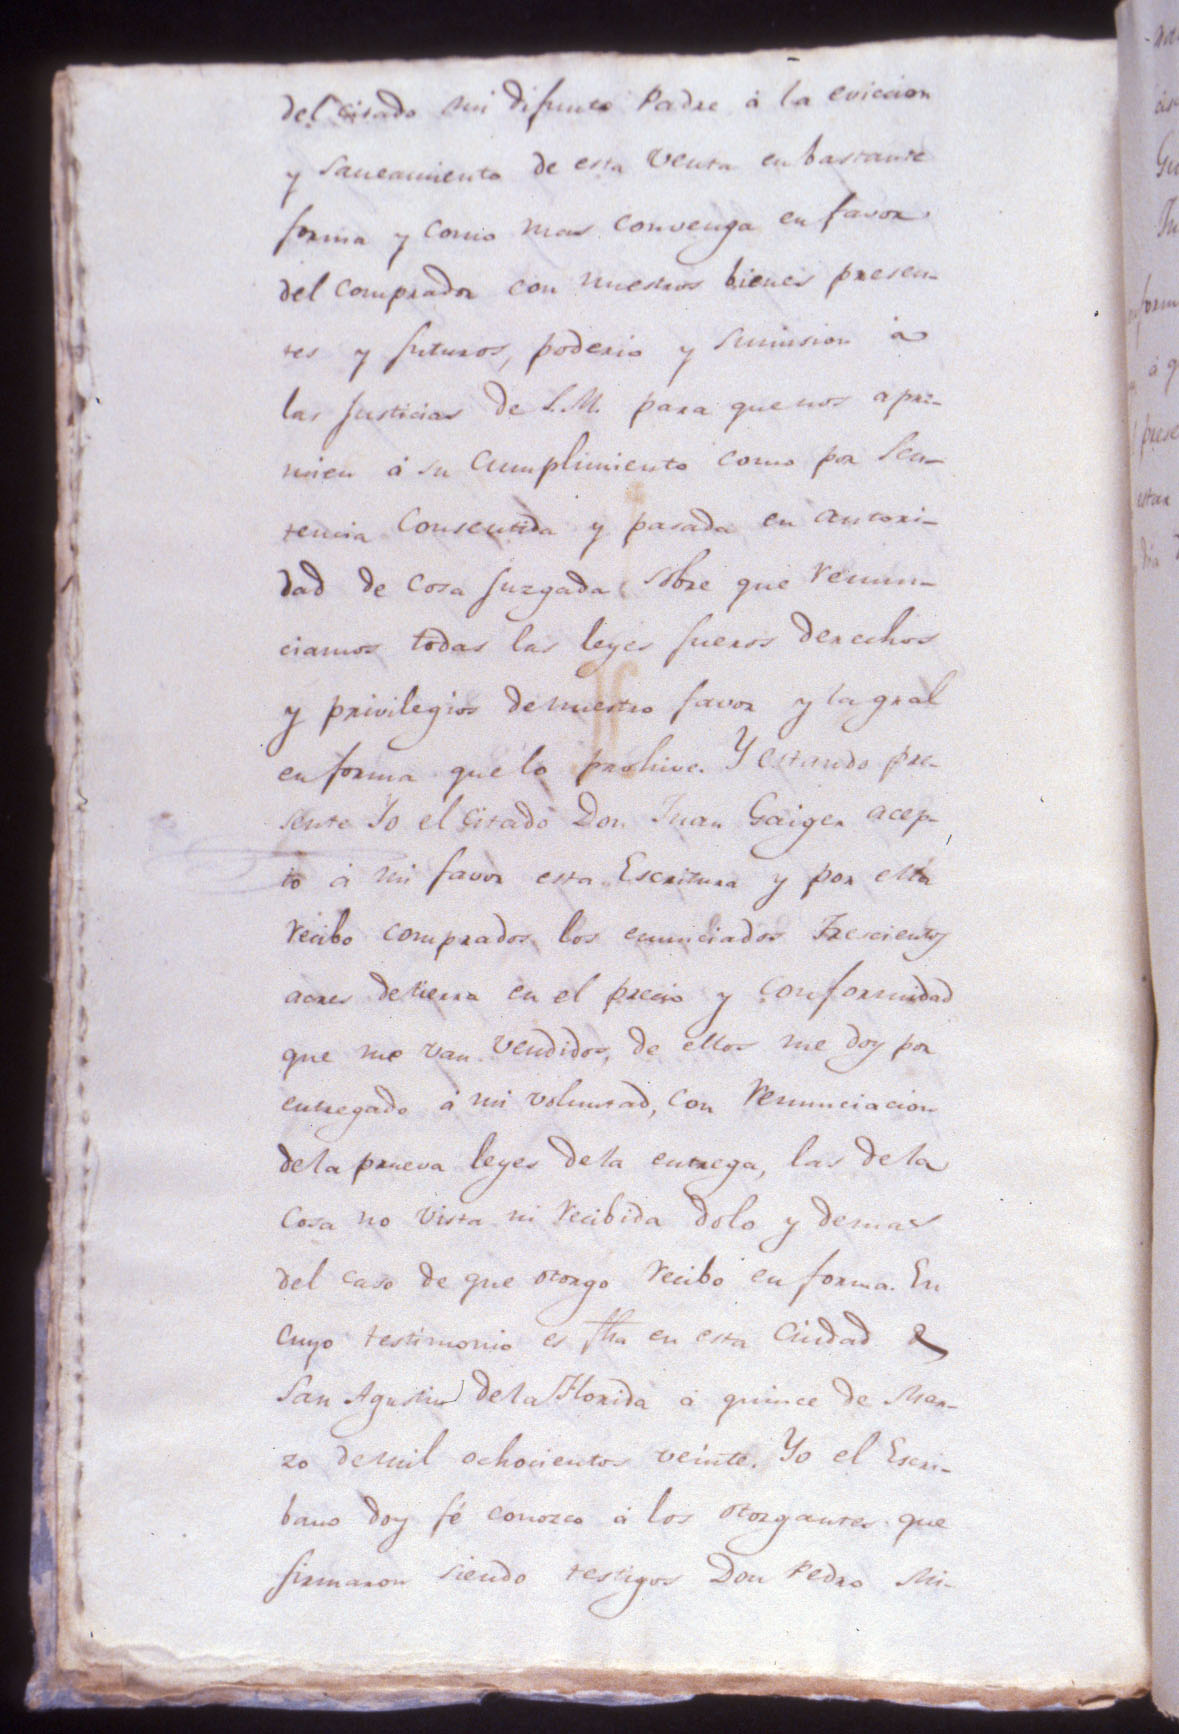 del citado mi difunto Padre á la eviccion
y saneamiento de esta Venta en bastante
forma y como mas convenga en favor
del comprador con nuestros bienes presen-
tes y futuros, poderio y sumision á
las Justicias de S.M. para que nos apre-
mien á su cumplimiento como por Sen-
tencia Consentida y pasada en autori-
dad de cosa Juzgada sobre que renun-
ciamos todas las leyes fueros derechos
y privilegios de nuestro favor y la gral
en forma que lo prohive. Y estando pre-
sente Yo el Citado Don Juan Gaiger acep-
to á mi favor esta Escritura y por ella
recibo comprados los enunciados Trescientos
acres de tierra en el precio y conformidad
que me van vendidos, de ellos me doy por
entregado á mi voluntad, con renunciacion
de la prueva leyes de la entrega, las de la
cosa no vista ni recibida dolo y demas
del caso de que otorgo recibo en forma. En
cuyo testimonio es fha en esta Ciudad de
San Agustin de la Florida á quince de Mar-
zo de mil ochocientos veinte. Yo el Escri-
bano doy fé conozco á los otorgantes que
firmaron siendo testigos Don Pedro Mi-